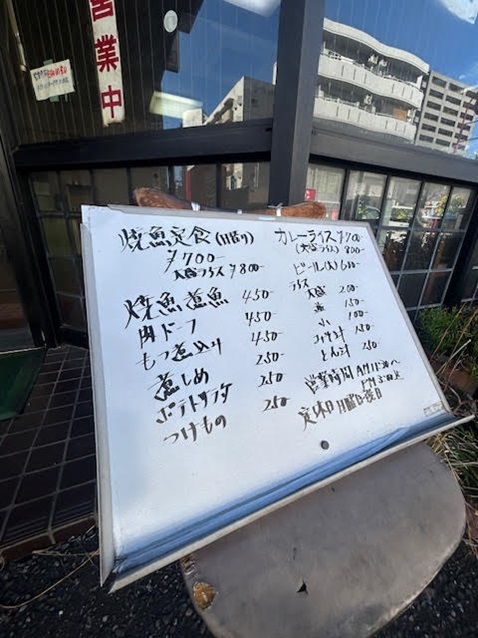 営業中
焼魚定食(日替り)
¥700-
大盛ライス¥800-
焼魚煮魚 450-
肉ドーフ 450-
もつ煮込み 450-
煮しめ 250-
ポテトサラダ 250
つけもの 250
カレーライス¥700-
(大盛ライス) 800-
ビール(大) 600-
ライス
大盛 200
並 150-
小 100
みそ汁 150
とん汁 250
営業時間 AM11:30~
PM 3:00迄
定休日 日曜日・祭日